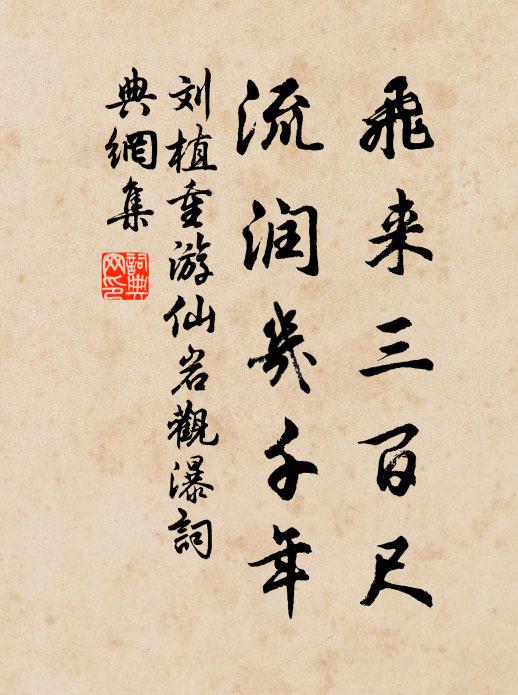 飛来三百尺
流润幾千年
刘植重游仙岩觀瀑詞
典網集
詞典网印